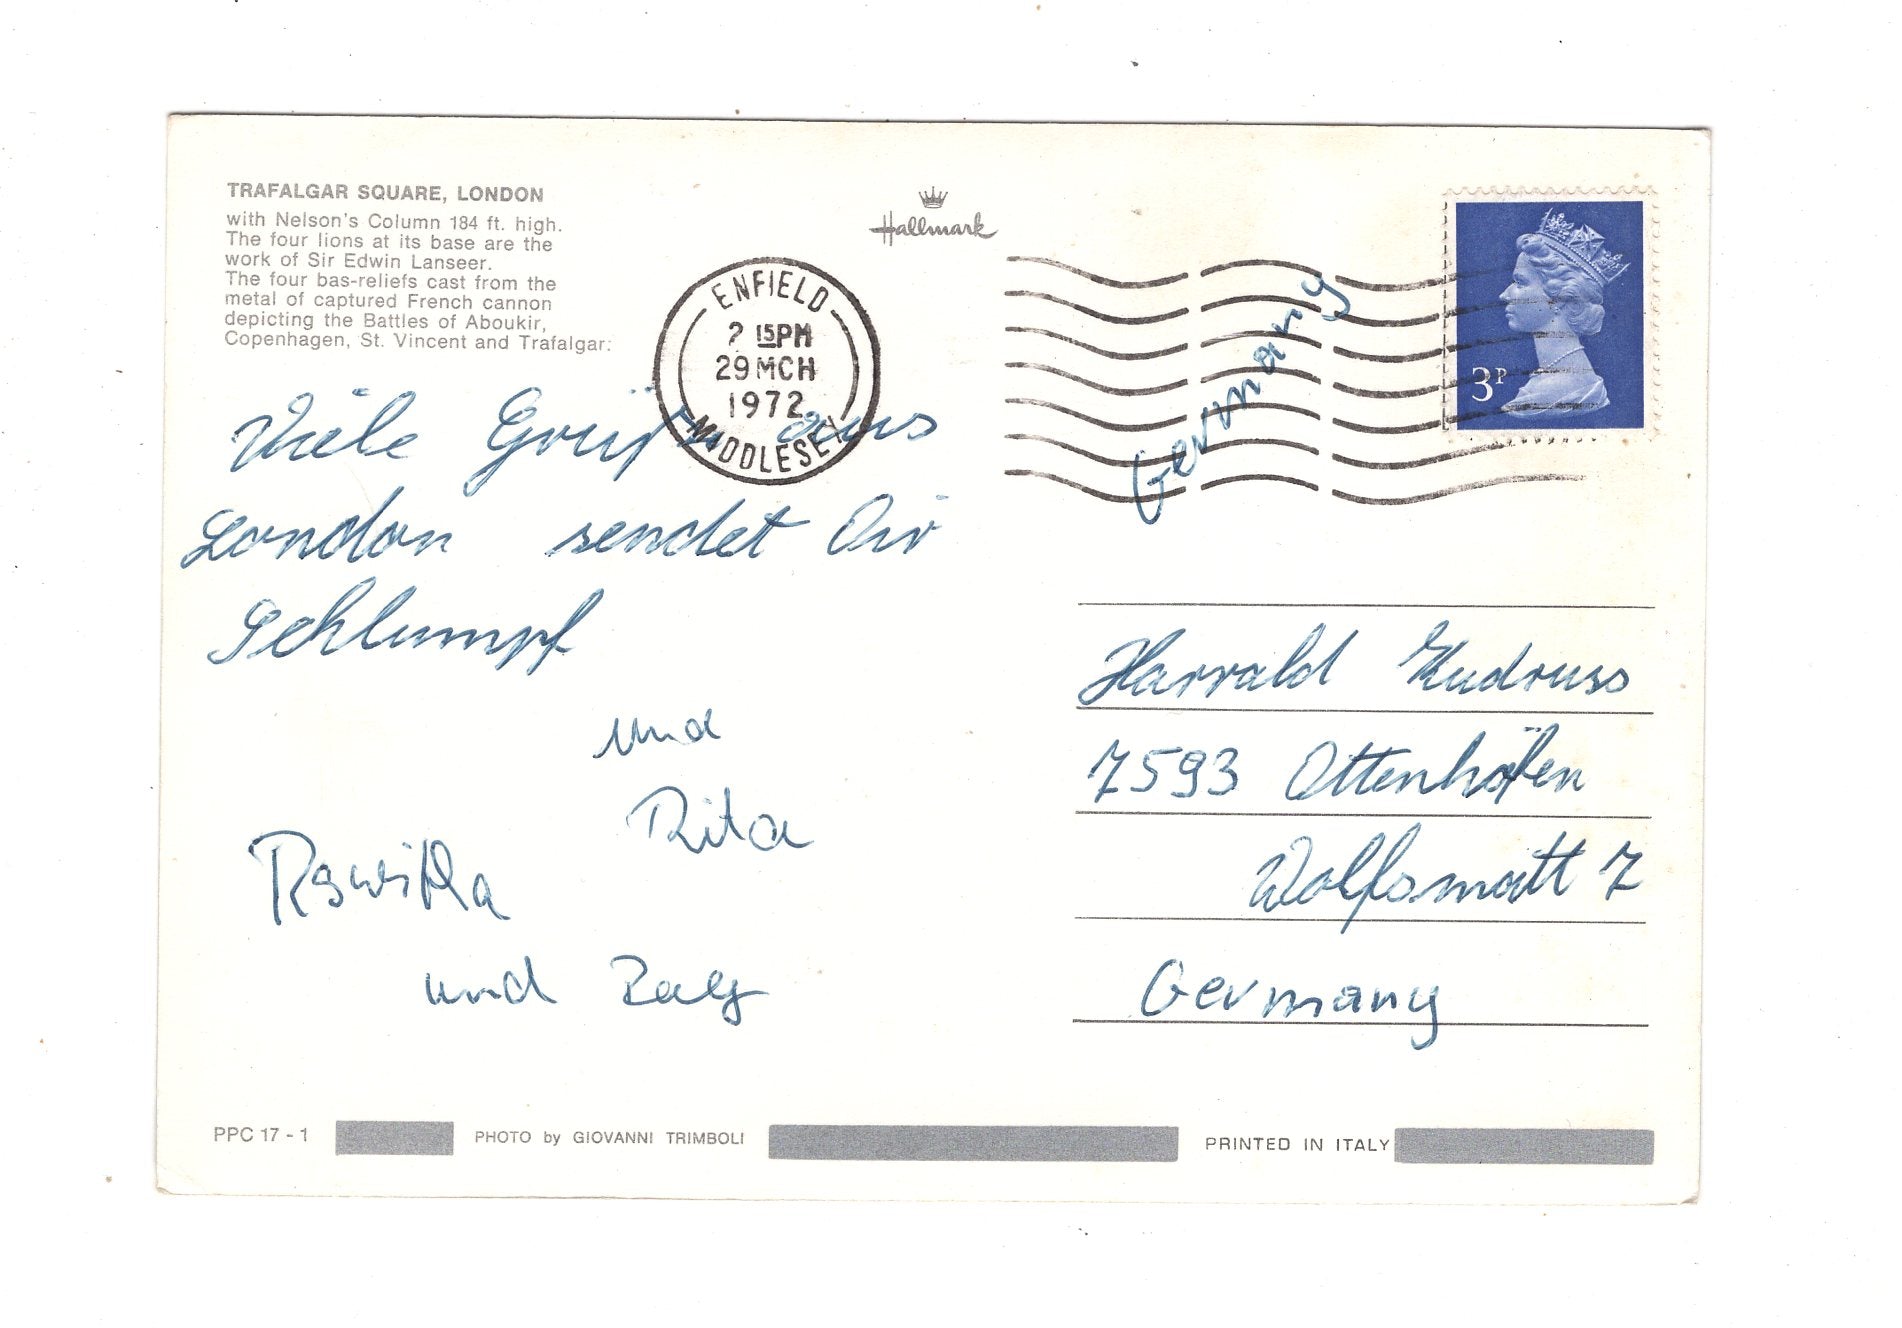 TRAFALGAR SQUARE, LONDON
with Nelson's Column 184 ft. high.
The four lions at its base are the
work of Sir Edwin Lanseer.
The four bas-reliefs cast from the
metal of captured French cannon
depicting the Battles of Aboukir,
Copenhagen, St. Vincent and Trafalgar.
Hallmark
ENFIELD
15PM
29 MCH
1972
MIDDLESEX
3P
Germany
Viele Grüße aus
London sendet Dir
Schlumpf
und
Rita
Roswitha
und
Harrald
7593 Ottenhöfen
Wolfsmatt 7
Germany
PPC 17 - 1
PHOTO by GIOVANNI TRIMBOLI
PRINTED IN ITALY